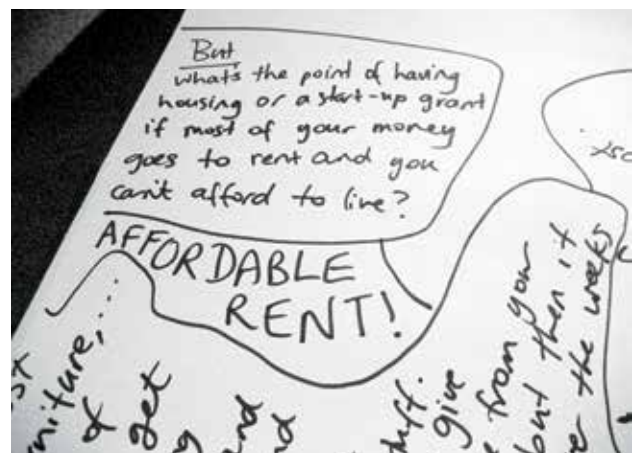 But
what's the point of having
housing or a start-up grant
if most of your money
goes to rent and you
can't afford to live?
AFFORDABLE
RENT!
get
stuff.
give
from your
but then if
the weeks